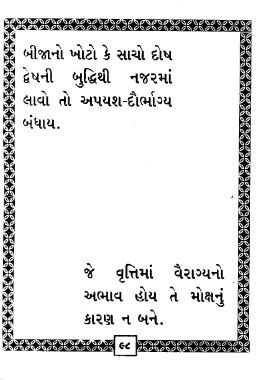 બીજાનો ખોટો કે સાચો દોષ
દ્વેષની બુદ્ધિથી નજરમાં
લાવો તો અપયશ-દૌર્ભાગ્ય
બંધાય.
જે વૃત્તિમાં વૈરાગ્યનો
અભાવ હોય તે મોક્ષનું
કારણ ન બને.
૯૮